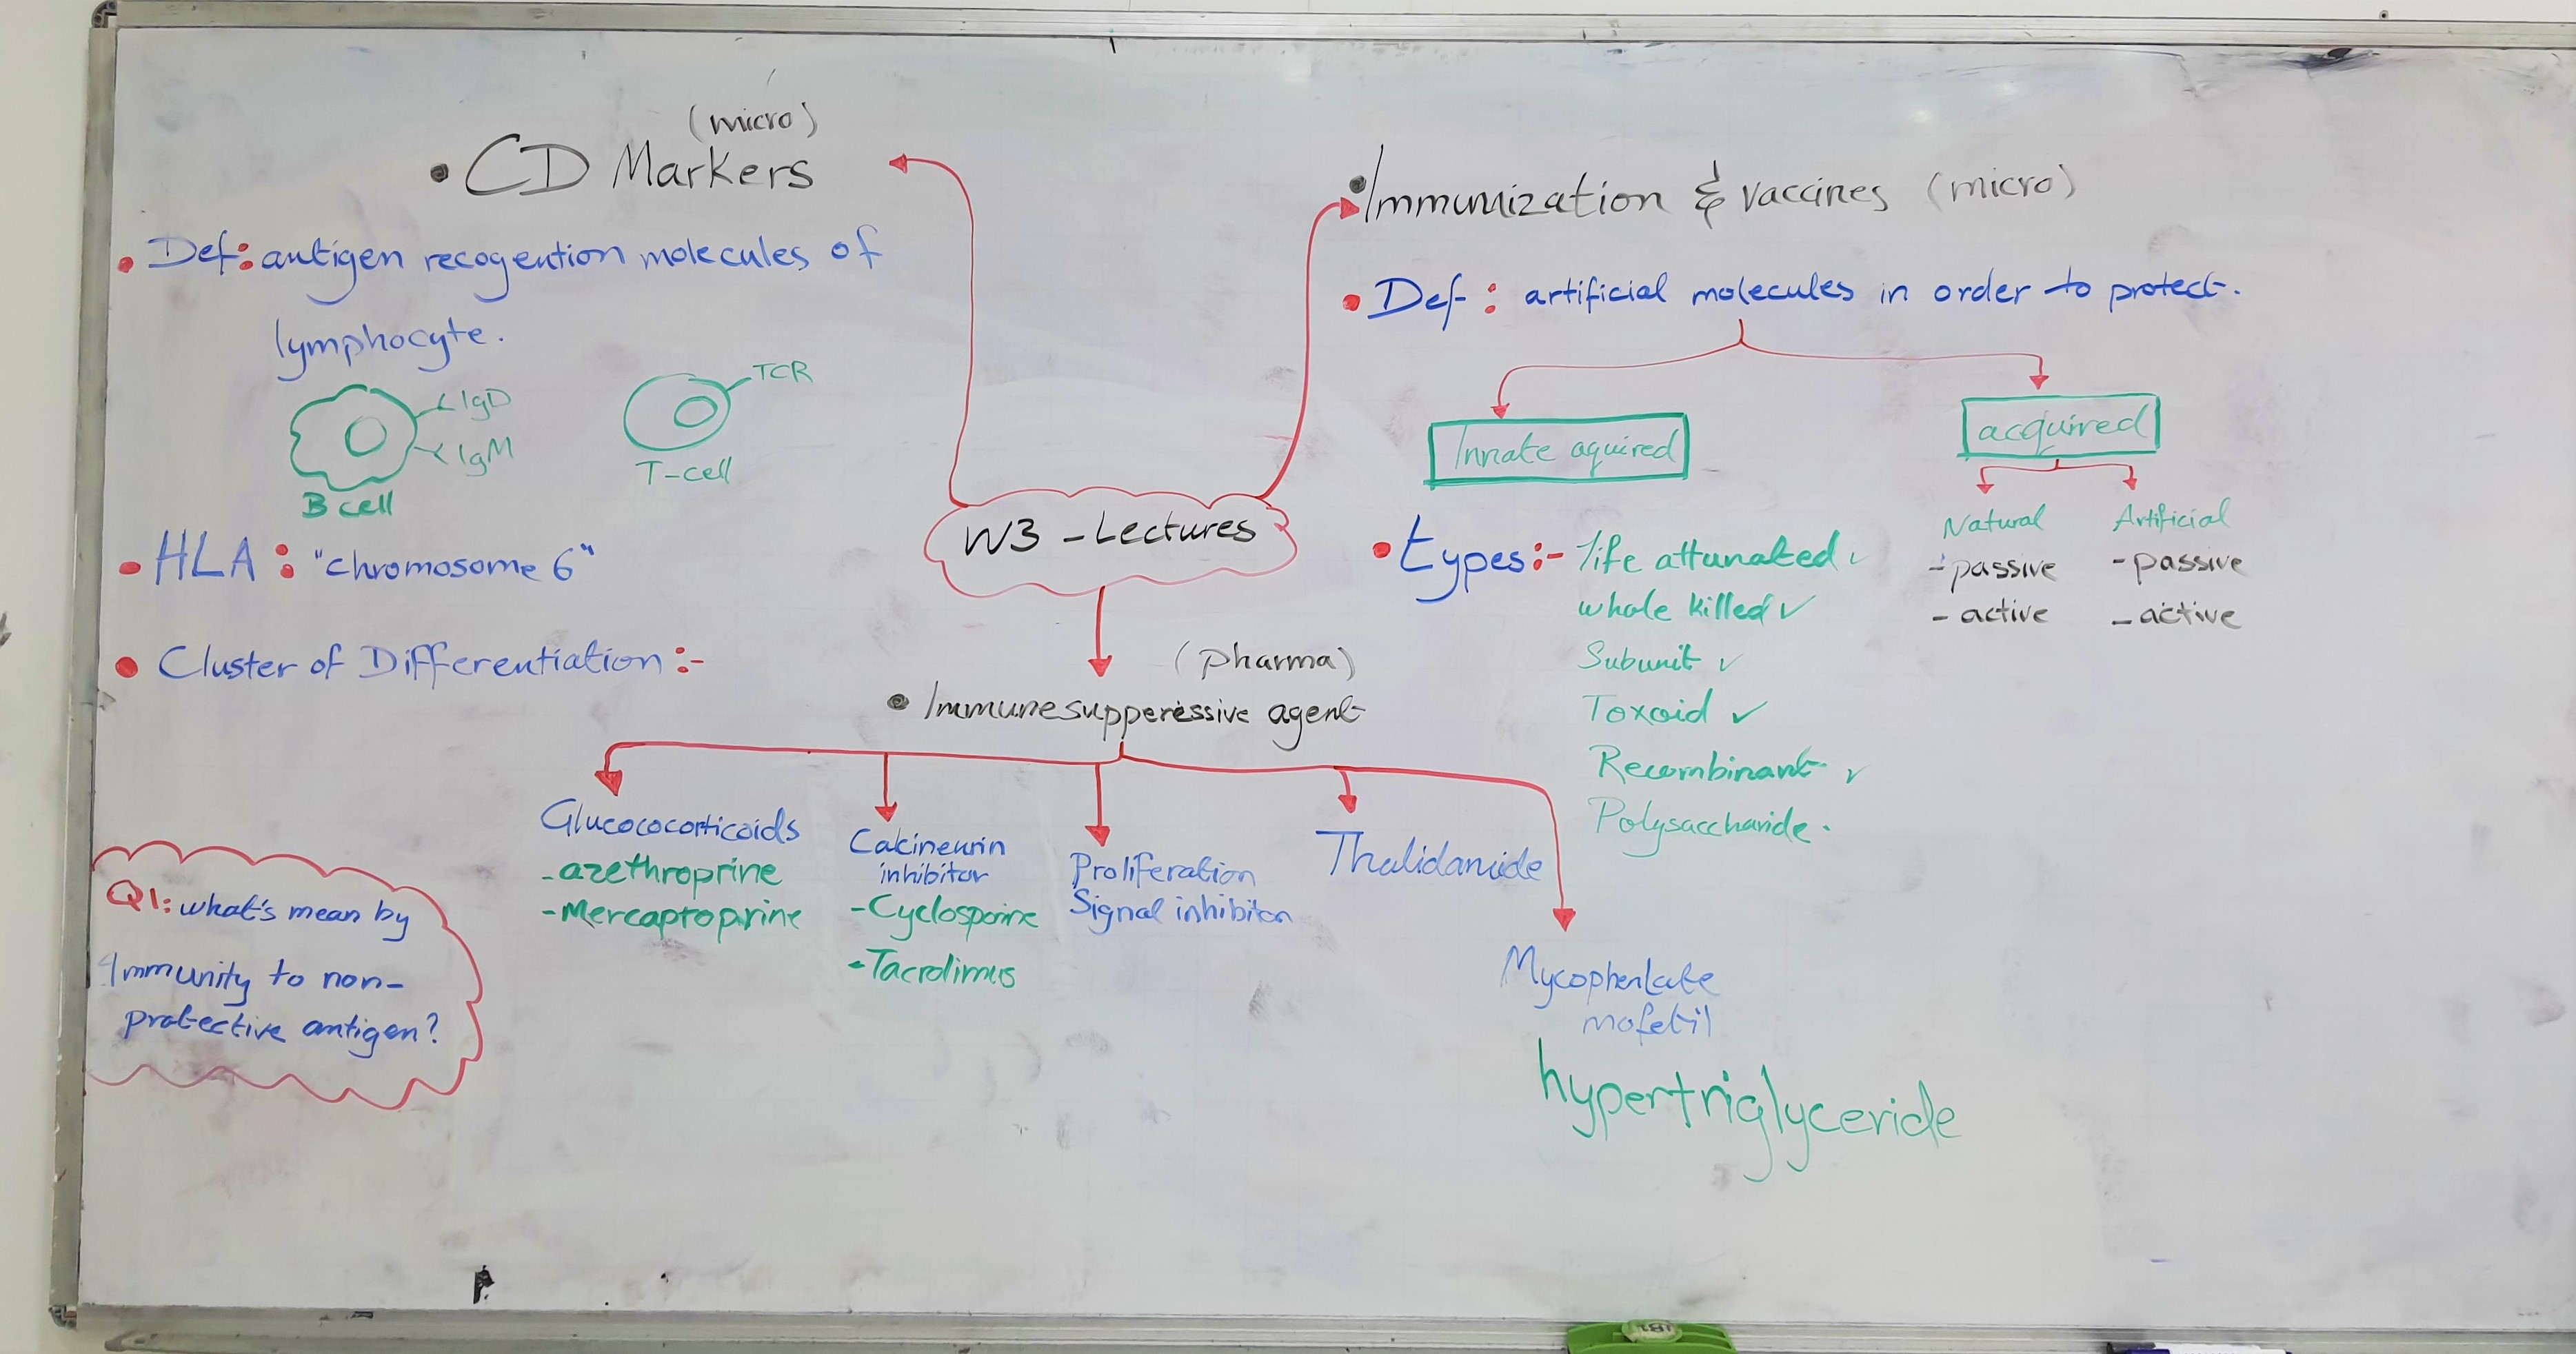 (micro)
• CD Markers
• Def: antigen recogention molecules of
lymphocyte.
IgD
IgM
B cell
TCR
T-cell
• HLA : "chromosome 6"
• Cluster of Differentiation :-
W3 - Lectures
• Immunization & vaccines (micro)
• Def : artificial molecules in order to protect.
Innate aquired
acquired
Natural
- passive
- active
Artificial
- passive
- active
• types :- life attunated ✓
whole killed ✓
Subunit ✓
Toxoid ✓
Recombinant ✓
Polysaccharide.
(pharma)
• Immunesupperessive agent
Glucococorticoids
- azethroprine
- Mercaptoprine
Calcineurin
inhibitor
- Cyclosporine
- Tacrolimus
Proliferation
Signal inhibitor
Thalidamide
Mycophenlate
mofetil
hypertriglyceride
Q1: what's mean by
Immunity to non-
protective antigen?
181